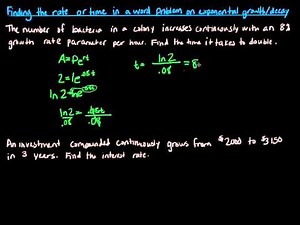 Finding the rate or time in a word problem on exponential growth/decay
The number of bacteria in a colony increases continuously with an 8%
growth rate parameter per hour. Find the time it takes to double.
A = Pe^rt
2 = 1e^.08t
ln 2 = ln e^.08t
ln 2 / .08 = .08t / .08
t = ln 2 / .08 = 8.
An investment compounded continuously grows from $2000 to $3150
in 3 years. Find the interest rate.